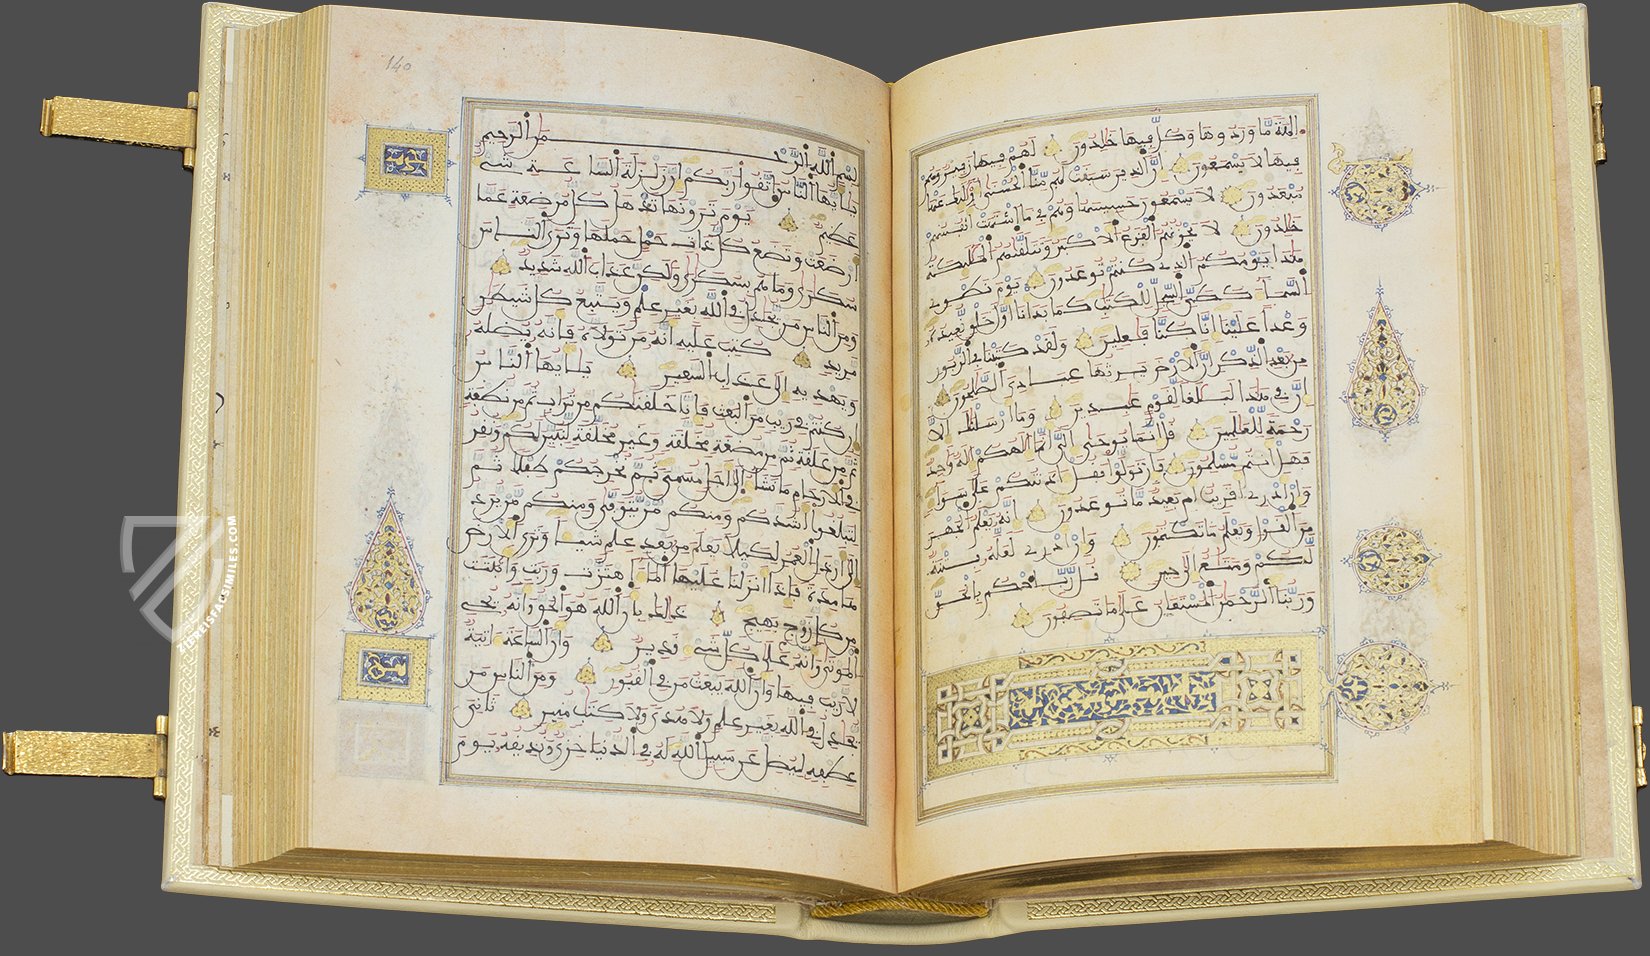 الهة ما وردوها وكل فيها خلدون لهم فيها زفير وهم
فيها لا يسمعون ان الذين سبقت لهم منا الحسنى اولئك عنها
مبعدون لا يسمعون حسيسها وهم في ما اشتهت انفسهم
خلدون لا يحزنهم الفزع الاكبر وتتلقيهم الملئكة
هذا يومكم الذي كنتم توعدون يوم نطوي
السماء كطي السجل للكتب كما بدانا اول خلق نعيده
وعدا علينا انا كنا فعلين ولقد كتبنا في الزبور
من بعد الذكر ان الارض يرثها عبادي الصلحون
ان في هذا لبلغا لقوم عبدين وما ارسلنك الا
رحمة للعلمين قل انما يوحى الي انما الهكم اله وحد
فهل انتم مسلمون فان تولوا فقل اذنتكم على سواء
وان ادري اقريب ام بعيد ما توعدون انه يعلم الجهر
من القول ويعلم ما تكتمون وان ادري لعله فتنة
لكم ومتع الى حين قل رب احكم بالحق
وربنا الرحمن المستعان على ما تصفون
140
بسم الله الرحمن الرحيم
يايها الناس اتقوا ربكم ان زلزلة الساعة شيء
عظيم يوم ترونها تذهل كل مرضعة عما
ارضعت وتضع كل ذات حمل حملها وترى الناس
سكرى وما هم بسكرى ولكن عذاب الله شديد
ومن الناس من يجدل في الله بغير علم ويتبع كل شيطن
مريد كتب عليه انه من تولاه فانه يضله
ويهديه الى عذاب السعير يايها الناس
ان كنتم في ريب من البعث فانا خلقنكم من تراب ثم من نطفة
ثم من علقة ثم من مضغة مخلقة وغير مخلقة لنبين لكم ونقر
في الارحام ما نشاء الى اجل مسمى ثم نخرجكم طفلا ثم
لتبلغوا اشدكم ومنكم من يتوفى ومنكم من يرد
الى ارذل العمر لكيلا يعلم من بعد علم شيئا وترى الارض
هامدة فاذا انزلنا عليها الماء اهتزت وربت وانبتت
من كل زوج بهيج ذلك بان الله هو الحق وانه يحي
الموتى وانه على كل شيء قدير وان الساعة اتية
لا ريب فيها وان الله يبعث من في القبور ومن الناس من
يجدل في الله بغير علم ولا هدى ولا كتب منير ثاني
عطفه ليضل عن سبيل الله له في الدنيا خزي ونذيقه يوم
ZIEREISFACSIMILES.COM